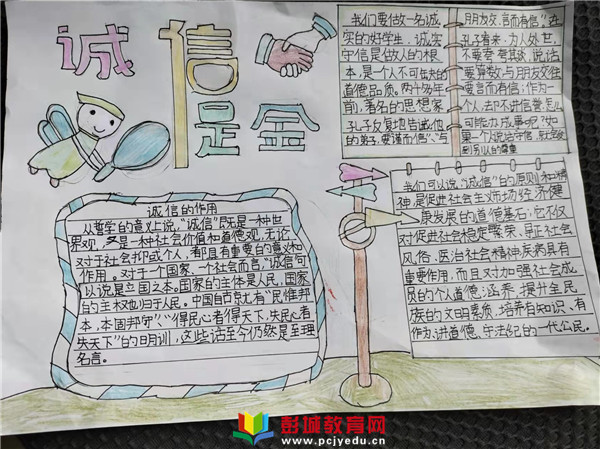 诚信是金
我们要做一名诚
实的好学生，诚实
守信是做人的根
本，是一个人不可缺失的
道德品质。两千多年
前，著名的思想家
孔子反复地告诫他
的弟子，要谨而信、与
朋友交，言而有信"。在
孔子看来，为人处世，
不要夸夸其谈，说话
要算数，与朋友交往
要言而有信；作为一
个人，却不讲信誉，怎么
可能办成事呢？如
果一个人说话守信，就会收
到别人的尊重
诚信的作用
从哲学的意义上说，"诚信"既是一种世
界观，又是一种社会价值和道德观，无论
对于社会抑或个人，都具有重要的意义和
作用。对于一个国家，一个社会而言，"诚信"句
以说是立国之本。国家的主体是人民，国家
的主权也归于人民。中国自古就有"民惟邦
本，本固邦宁"、"得民心者得天下，失民心者
失天下"的明训，这些话至今仍然是至理
名言。
我们可以说，"诚信"的原则和精
神，是促进社会主义市场经济健
康发展的道德基石；它不仅
对促进社会稳定繁荣、匡正社会
风俗、医治社会精神疾病具有
重要作用，而且对加强社会成
员的个人道德涵养、提升全民
族的文明素质，培养有知识、有
作为、讲道德、守法纪的一代公民。
彭城教育网
www.pcjyedu.cn